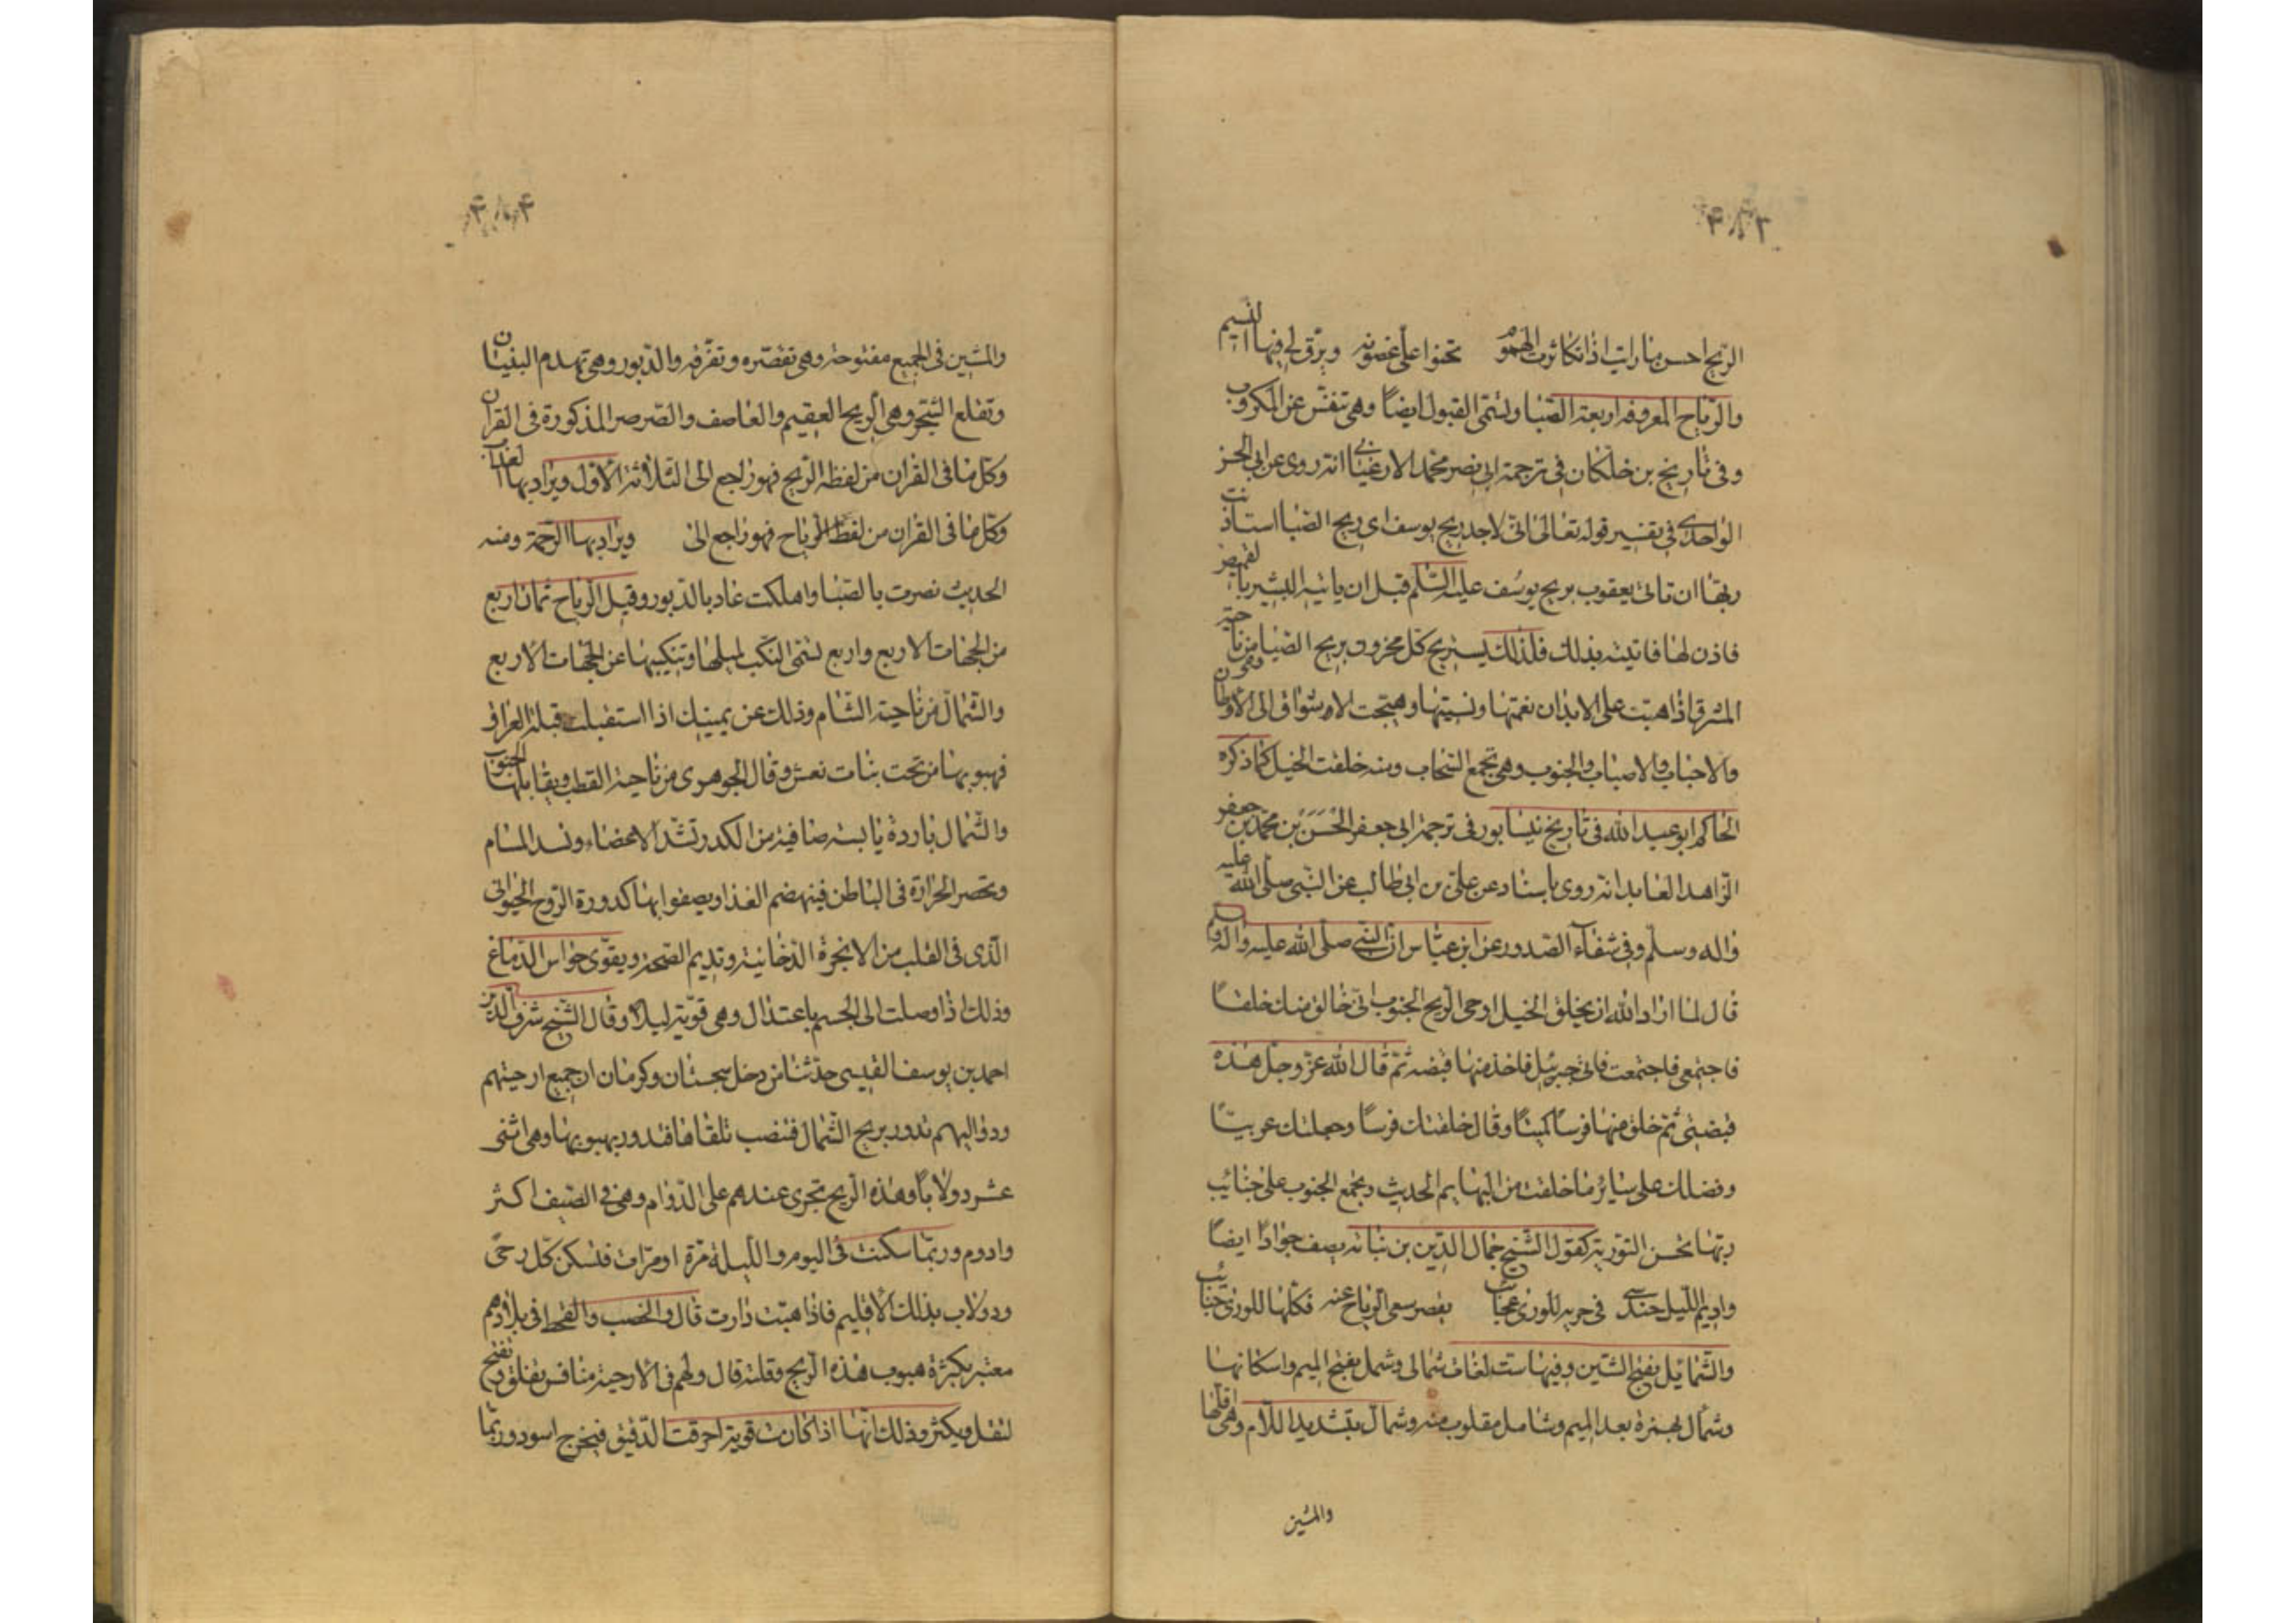 ۴۸۳
الريح احسن ما رايت اذا تكاثرت الهموم تحنوا على غصونه ويرق لي فيها النسيم
والرياح المعروفة اربعة الصبا وتسمى القبول ايضاً وهى تنفس عن المكروب
وفى تاريخ بن خلكان فى ترجمة ابى نصر محمد الارغيانى انه روى عن ابى الحسن
الواحدى فى تفسير قوله تعالى انى لاجد ريح يوسف اى ريح الصبا استاذنت
ربها ان تاتى يعقوب بريح يوسف عليه السلم قبل ان ياتيه البشير بالقميص
فاذن لها فاتيته بذلك فلذلك يستريح كل محزون بريح الصبا من ناحية
المشرق اذا هبت على الابدان نعمتها ونسيتها وهيجت الاشواق الى الاوطان
والاحباب والاصباب والجنوب وهى تجمع السحاب ومنه خلقت الخيل كما ذكره
الحاكم ابو عبد الله فى تاريخ نيسابور فى ترجمة ابى جعفر الحسن بن محمد بن جعفر
الزاهد العابد انه روى باسناد عن على بن ابى طالب عن النبى صلى الله عليه
واله وسلم وفى شفاء الصدور عن ابن عباس ان النبى صلى الله عليه واله وسلم
قال لما اراد الله ان يخلق الخيل اوحى الريح الجنوب انى خالق منك خلقاً
فاجتمعى فاجتمعت فاتى جبرئيل فاخذ منها قبضه ثم قال الله عز وجل هذه
قبضتى ثم خلق منها فرساً كميتاً وقال خلقتك فرساً وجعلتك عربياً
وفضلتك على ساير ما خلقت من البهايم الحديث ويجمع الجنوب على جنايب
ربها نحسن التورية كقول الشيخ جمال الدين بن نباته يصف جواداً ايضاً
وادهم الليل حندسى فى جريه للورى عجائب يقصر سعى الرياح عنه فكلها للورى جنائب
والشمايل بفتح الشين وفيها ست لغات شمالى وشمل بفتح الميم واسكانها
وشمأل بهمزة بعد الميم وشامل مقلوب منه وشمأل بتشديد اللام وهى اقلها
والشين
۴۸۴
والشين فى الجميع مفتوحة وهى تقصره وتفرقه والدبور وهى تهدم البنيان
وتقلع الشجر وهى الريح العقيم والعاصف والصرصر المذكورة فى القران
وكل ما فى القران من لفظة الريح فهو راجع الى الثلاثة الاول ويراد بها العذاب
وكل ما فى القران من لفظ الرياح فهو راجع الى ويراد بها الرحمة ومنه
الحديث نصرت بالصبا واهلكت عاد بالدبور وقيل الرياح ثمان اربع
من الجهات الاربع واربع تسمى النكب لميلها وتنكيبها عن الجهات الاربع
والشمال من ناحية الشام وذلك عن يمينك اذا استقبلت قبلة العراق
فهبوبها من تحت بنات نعش وقال الجوهرى من ناحية القطب ويقابلها الجنوب
والشمال باردة يابسة صافية من الكدر تشد الاعضاء وتسد المسام
وتحصر الحرارة فى الباطن فينهضم الغذا ويصفوا بها كدورة الروح الحيوانى
الذى فى القلب من الابخرة الدخانية وتديم الصحة ويقوى حواس الدماغ
وذلك اذا وصلت الى الجسم باعتدال وهى قوية ليلاً وقال الشيخ شرف الدين
احمد بن يوسف القيسى حدثنا من دخل سجستان وكرمان ان جميع ارحيتهم
ودواليبهم تدور بريح الشمال فتنصب تلقاها فتدور بهبوبها وهى اثنى
عشر دولاباً وهذه الريح تجرى عندهم على الدوام وهى فى الصيف اكثر
وادوم وربما سكنت فى اليوم والليلة مرة او مرات فتسكن كل رحى
ودولاب بذلك الاقليم فاذا هبت دارت قال والخصب والقحط فى بلادهم
معتبر بكثرة هبوب هذه الريح وقلته قال ولهم فى الارحية منافس تغلق وتفتح
لتقل ويكثر وذلك انها اذا كانت قوية احرقت الدقيق فيخرج اسود وربما